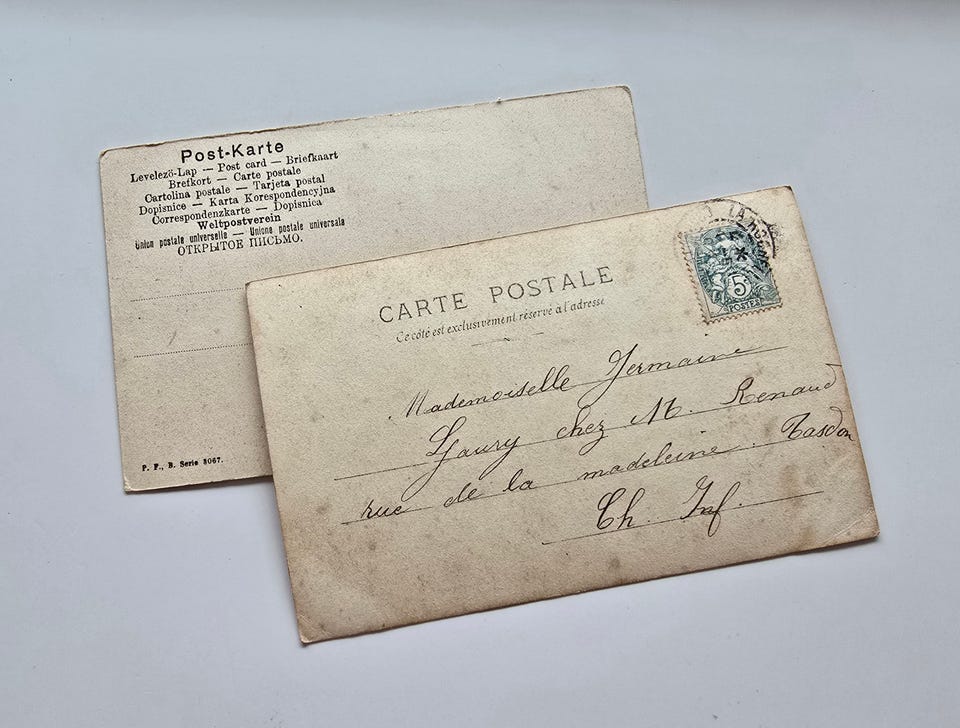 Post-Karte
Levelezö-Lap — Post card — Briefkaart
Brefkort — Carte postale
Cartolina postale — Tarjeta postal
Dopisnice — Karta Korespondencyjna
Correspondenzkarte — Dopisnica
Weltpostverein
Union postale universelle — Unione postale universale
ОТКРЫТОЕ ПИСЬМО.
P. F., B. Serie 3067.
CARTE POSTALE
Ce côté est exclusivement réservé à l'adresse
5
POSTES
Mademoiselle Germaine
Gaury chez M. Renaud
rue de la madeleine. Tasdon
Ch. Inf.